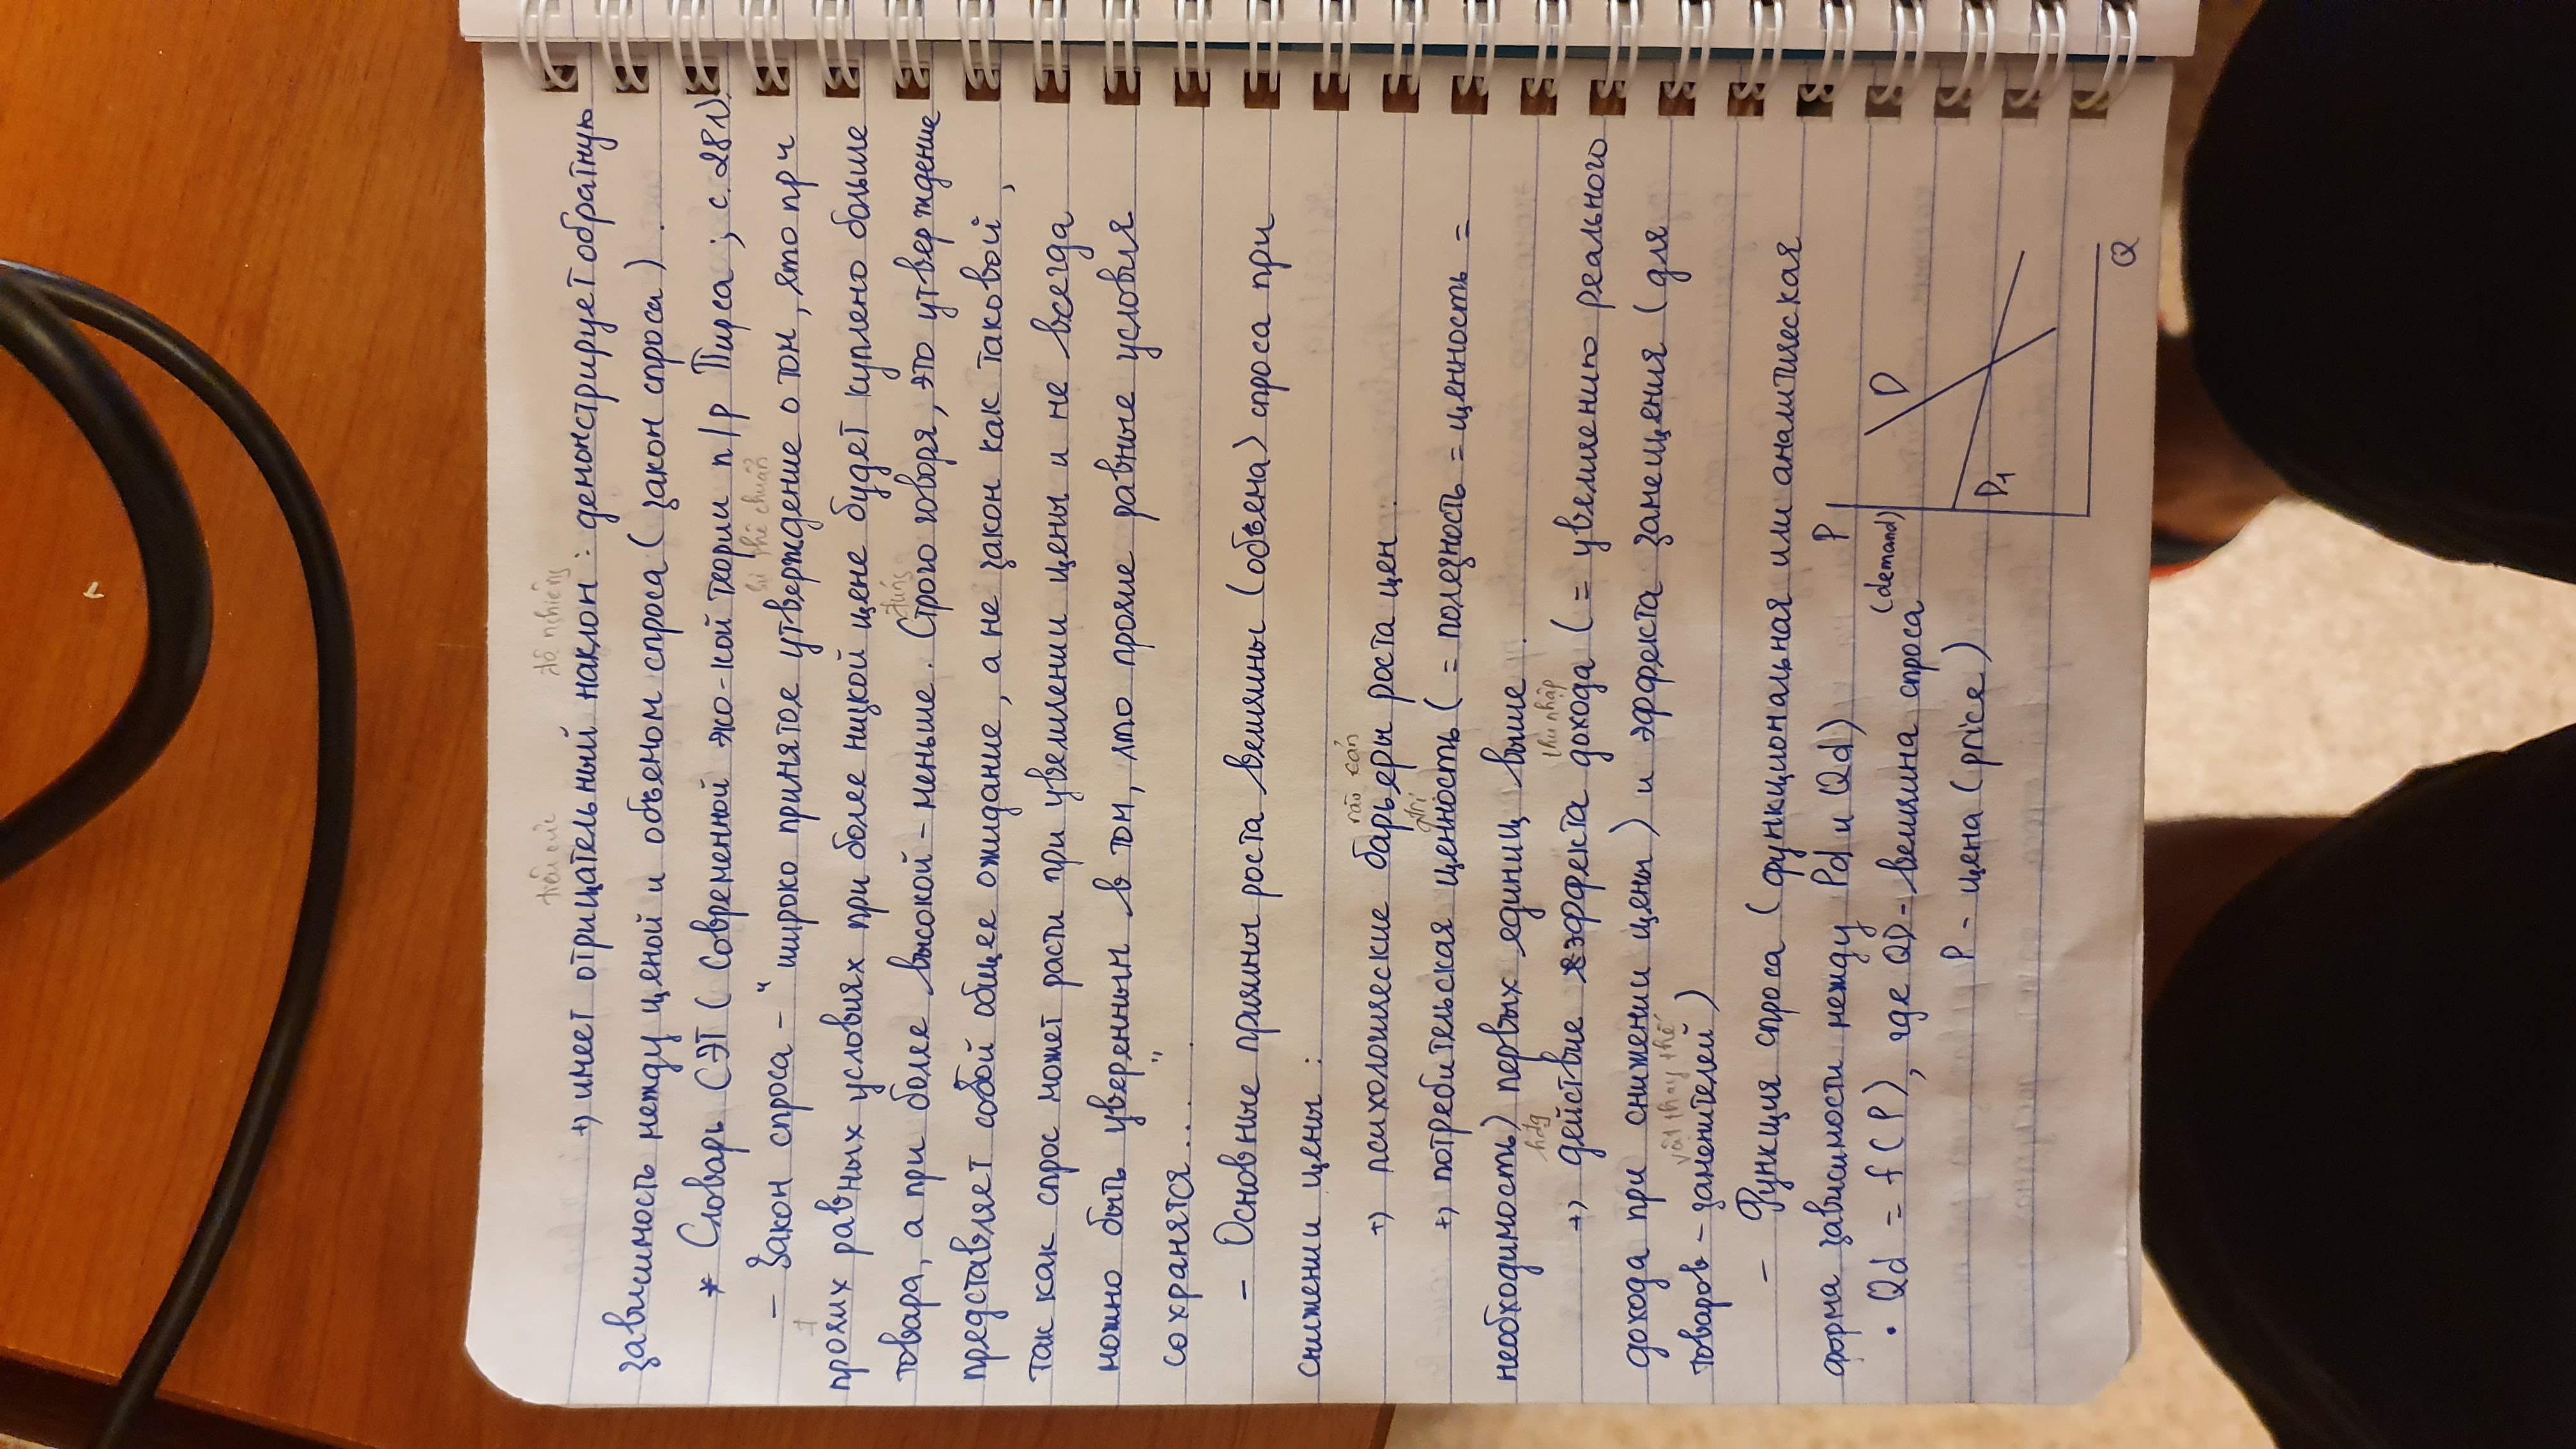 tiêu cực độ nghiêng
+) имеет отрицательный наклон : демонстрирует обратную
зависимость между ценой и объемом спроса ( закон спроса ) .
* Словарь СЭТ ( Современной эко-кой теории п/р Пирса ; с. 281).
sự phê chuẩn
- Закон спроса - "широко принятое утверждение о том, что при
прочих равных условиях при более низкой цене будет куплено больше
đúng
товара, а при более высокой - меньше. Строго говоря, это утверждение
представляет собой общее ожидание, а не закон как таковой,
так как спрос может расти при увеличении цены и не всегда
можно быть уверенным в том, что прочие равные условия
сохранятся... ".
- Основные причины роста величины (объема) спроса при
снижении цены :
rào cản
+) психологические барьеры роста цен .
+) потребительская ценность ( = полезность = ценность =
необходимость) первых единиц выше .
hđg thu nhập
+) действие эффекта дохода ( = увеличению реального
дохода при снижении цены ) и эффекта замещения ( для
vật thay thế
товаров - заменителей )
- Функция спроса ( функциональная или аналитическая
форма зависимости между Pd и Qd)
• Qd = f(P), где QD - величина спроса (demand)
P - цена (price)
P
D
D1
Q